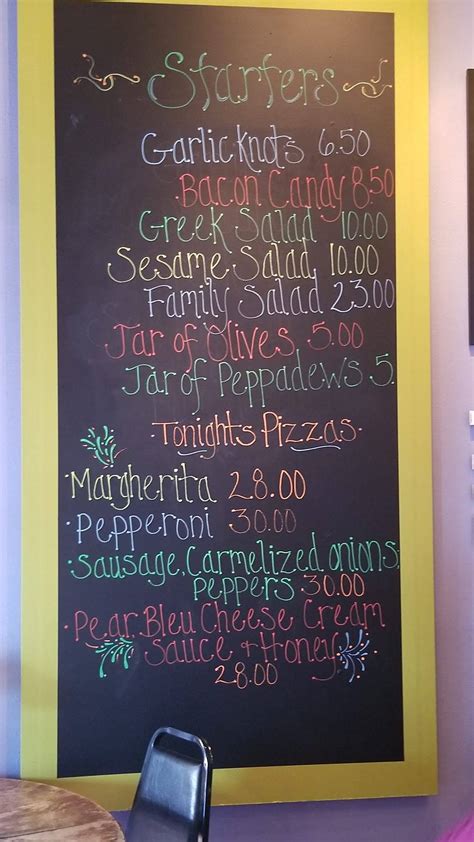 Starters
Garlic knots 6.50
Bacon Candy 8.50
Greek Salad 10.00
Sesame Salad 10.00
Family Salad 23.00
Jar of Olives 5.00
Jar of Peppadews 5.
Tonights Pizzas
Margherita 28.00
Pepperoni 30.00
Sausage, Carmelized onions,
peppers 30.00
Pear, Bleu Cheese Cream
Sauce + Honey
28.00